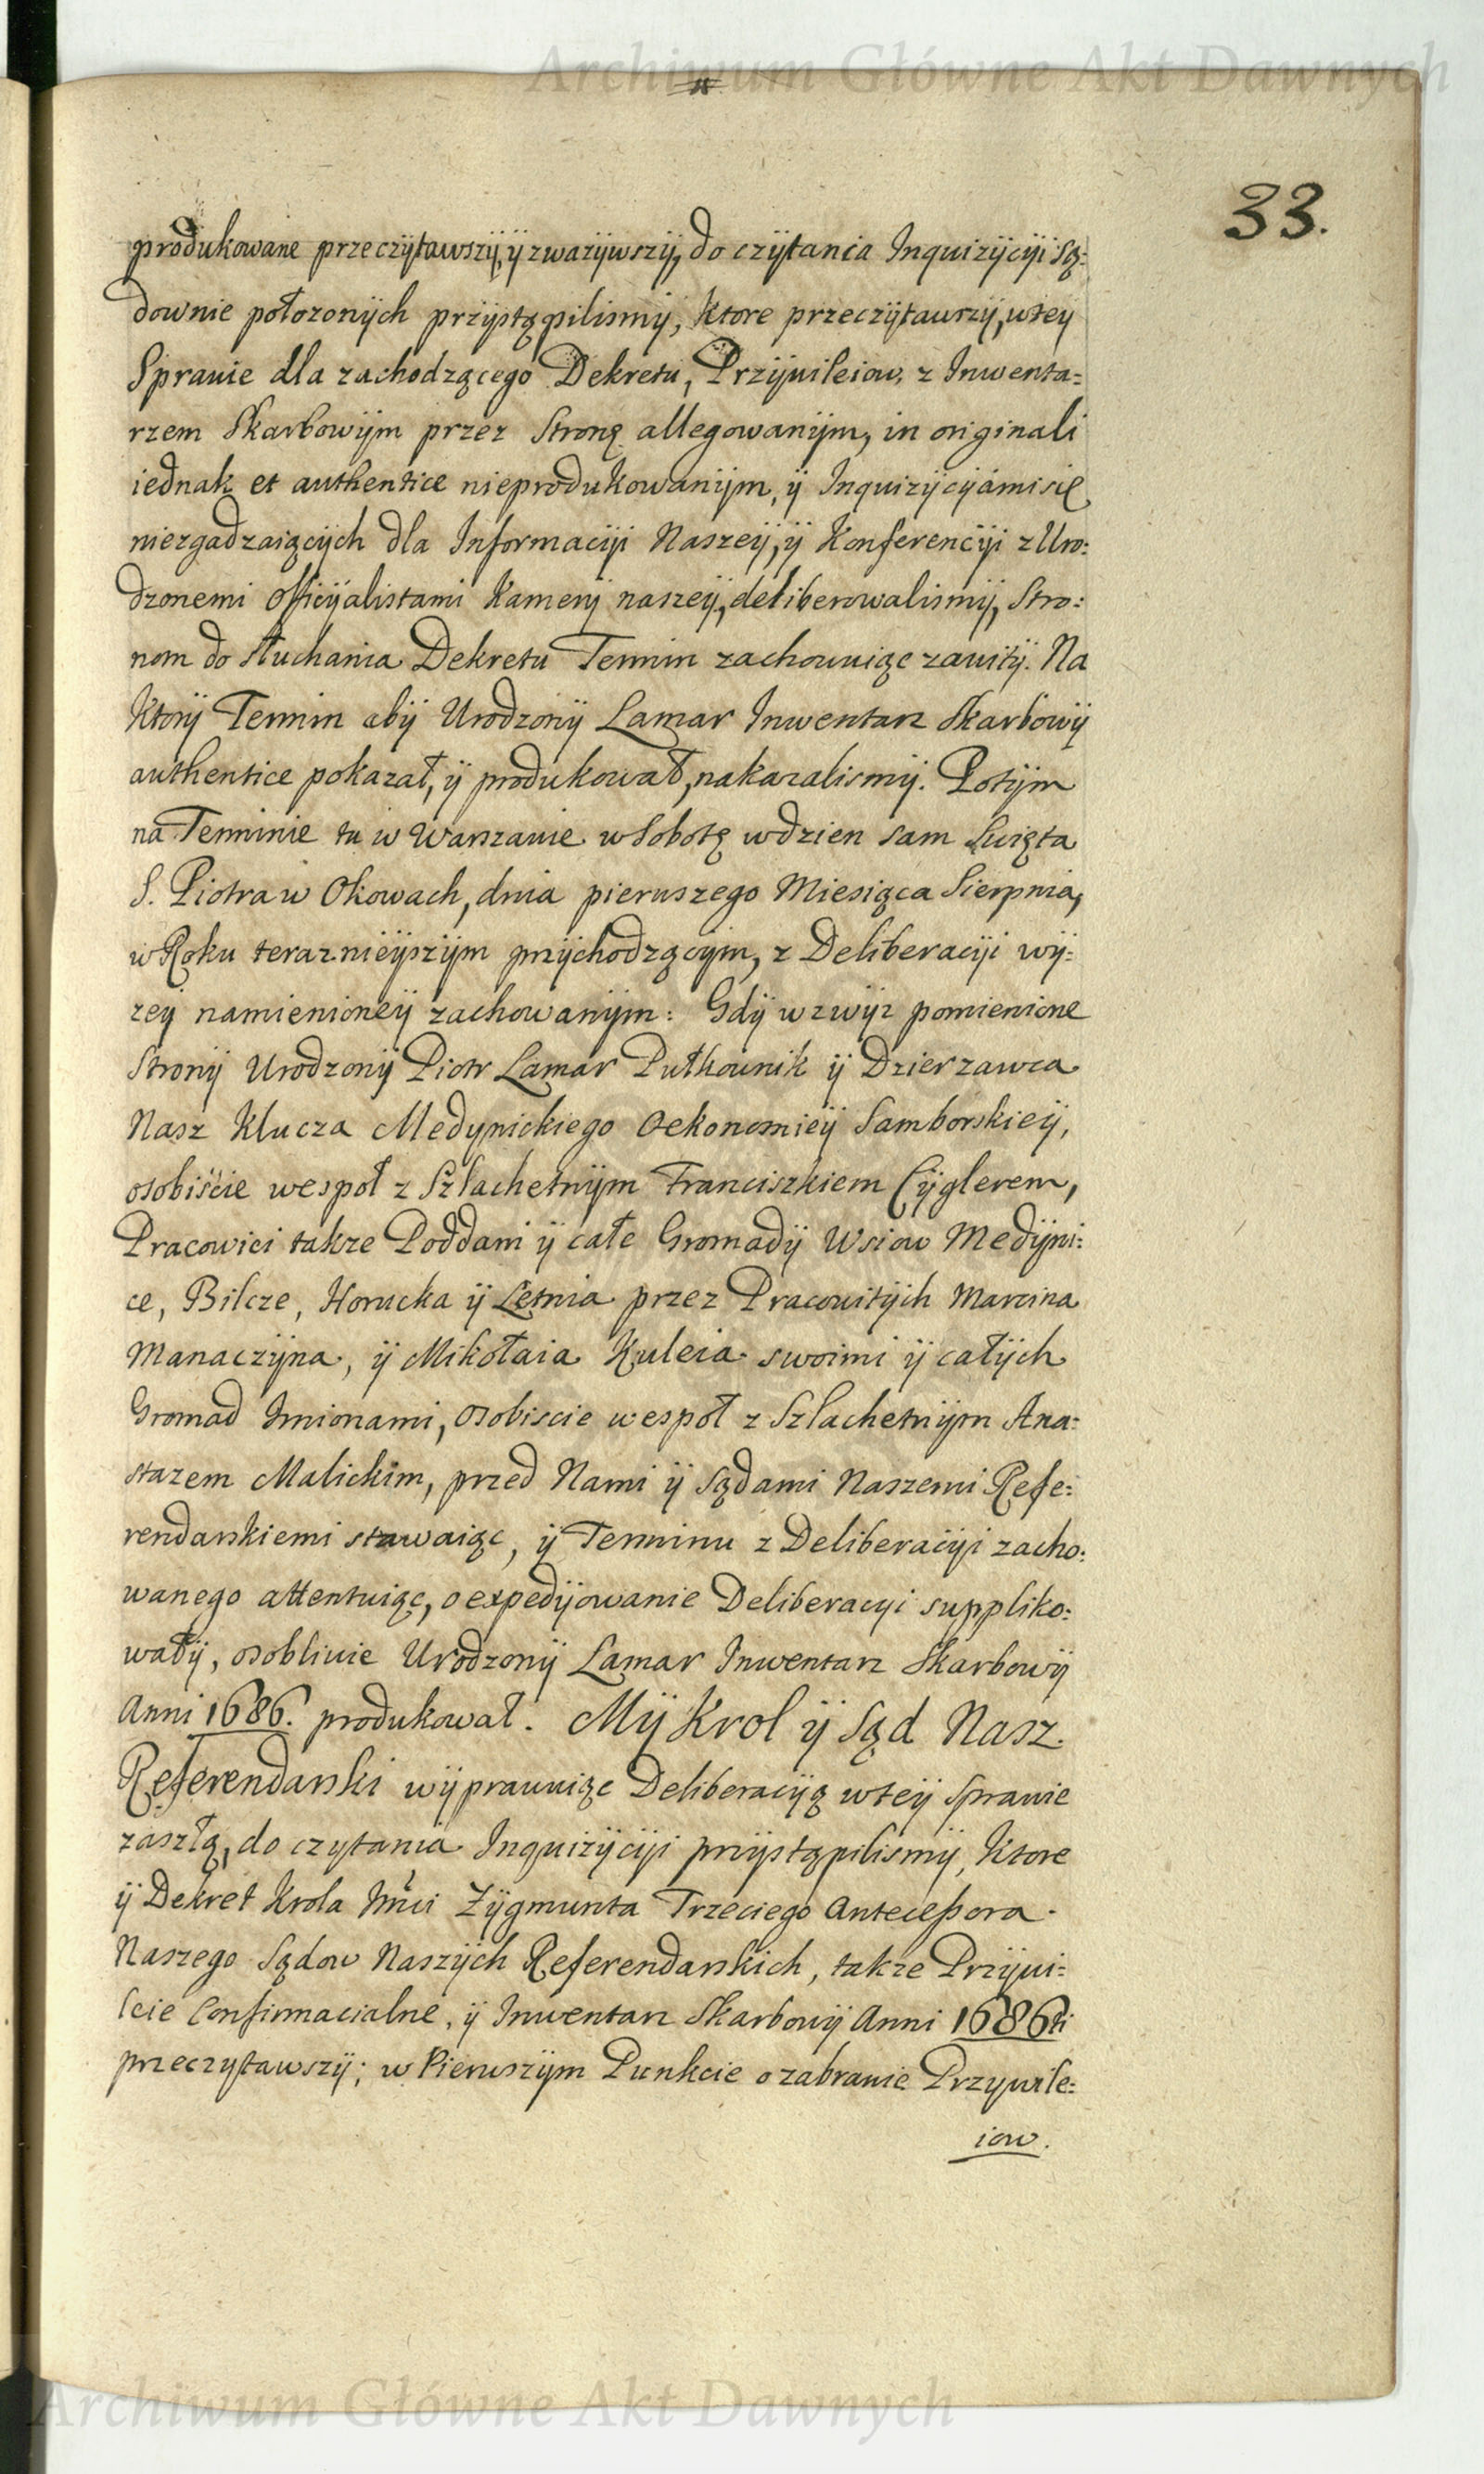 Archiwum Główne Akt Dawnych
33.
produkowane przeczÿtawszÿ, ÿ zwazÿwszÿ, do czÿtania Inquizÿcÿi Są:
downie położonÿch przÿstąpilismÿ, Ktore przeczÿtawszÿ, wteÿ
Sprawie dla zachodzącego Dekretu, Przÿwileiow, z Inwenta:
rzem Skarbowÿm przez Stronę allegowanÿm, in originali
iednak et authentice nieprodukowanÿm, ÿ Inquizÿcÿámi się
niezgadzaiącÿch dla Informacÿi Naszeÿ, ÿ Konferencÿi z Uro:
dzonemi Officÿalistami Kamerÿ naszeÿ, deliberowalismÿ, Stro:
nom do słuchania Dekretu Termin zachowuiąc zawitÿ. Na
Ktorÿ Termin abÿ Urodzonÿ Lamar Inwentarz Skarbowÿ
authentice pokazał, ÿ produkował, nakazalismÿ. Potÿm
na Terminie tu w Warszawie w Sobotę wdzien sam Swięta
S. Piotra w Okowach, dnia pierwszego Miesiąca Sierpnia,
w Roku teraznieÿszÿm przÿchodzącÿm, z Deliberacÿi wÿ:
zeÿ namienioneÿ zachowanÿm: Gdÿ wzwÿz pomienione
Stronÿ Urodzonÿ Piotr Lamar Pułkownik ÿ Dzierzawca
Nasz Klucza Medynickiego Oekonomieÿ Samborskieÿ,
osobiście wespoł z Szlachetnÿm Franciszkiem Cÿglerem,
Pracowici takze Poddani ÿ całe Gromadÿ Wsiow Medÿni:
ce, Bilcze, Horucka ÿ Letnia przez Pracowitÿch Marcina
Manaczÿna, ÿ Mikołaia Kuleia swoimi ÿ całÿch
Gromad Imionami, osobiscie wespoł z Szlachetnÿm Ana:
stazem Malickim, przed Nami ÿ Sądami Naszemi Refe:
rendarskiemi stawaiąc, ÿ Terminu z Deliberacÿi zacho:
wanego attentuiąc, o expedÿowanie Deliberacyi suppliko:
wałÿ, osobliwie Urodzonÿ Lamar Inwentarz Skarbowÿ
Anni 1686. produkował. MÿKrol ÿ Sąd Nasz.
Referendarski wÿprawuiąc Deliberacÿą wteÿ Sprawie
zaszłą, do czytania Inquizÿcÿi przÿstąpilismÿ, Ktore
ÿ Dekret Krola Jmci Zÿgmunta Trzeciego Anteceßora
Naszego Sądow Naszÿch Referendarskich, takze Przÿwi:
leie Confirmacialne, ÿ Inwentarz Skarbowÿ Anni 1686ti
przeczytawszÿ; w Pierwszÿm Punkcie o zabranie Przywile:
iow.
Archiwum Główne Akt Dawnych